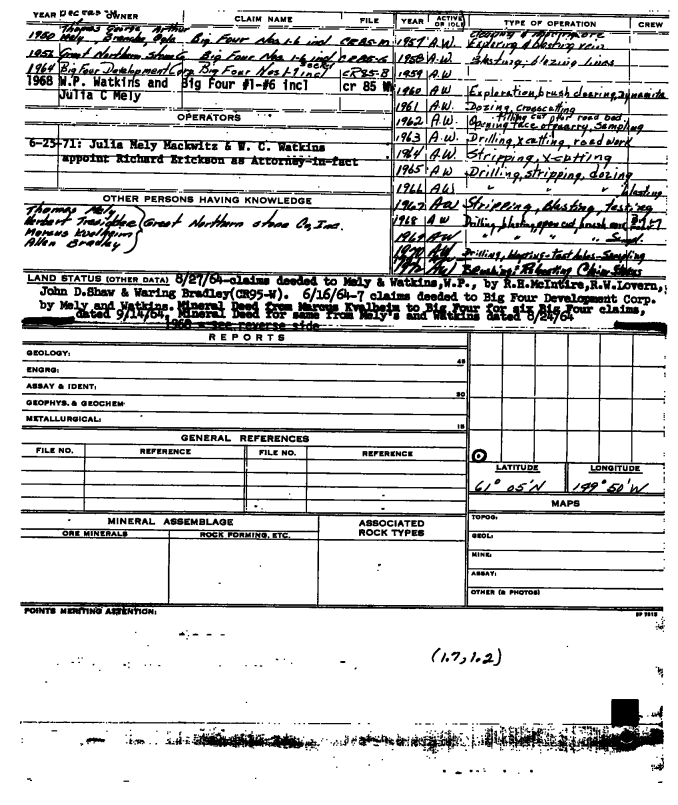 YEAR OWNER CLAIM NAME FILE
1950 Thomas George Arthur Mely, Big Four Nos 1-6 incl CR85-M
195 Great Northern Stone Co Big Four Nos 1-6 incl CR85-G
1964 Big Four Development Corp Big Four Nos 1-7 incl CR85-B
1968 W.P. Watkins and Julia C Mely Big Four #1-#6 incl cr 85
OPERATORS
6-25-71: Julia Mely Mackwitz & W. C. Watkins
appoint Richard Erickson as Attorney-in-fact
OTHER PERSONS HAVING KNOWLEDGE
Thomas Mely
Great Northern stone Co, Inc.
Allen Bradley
YEAR ACTIVE OR IDLE TYPE OF OPERATION CREW
1957 A.W. Exploring & blasting vein
1958 A.W. Blasting, blazing lines
1959 A.W
1960 A.W. Exploration, brush clearing, Dynamite
1961 A.W. Dozing, Crosscutting
1962 A.W. Filling cut for road bed, Opening face of quarry, Sampling
1963 A.W. Drilling, x cutting, road work
1964 A.W. Stripping, x-cutting
1965 A.W Drilling, stripping, dozing
1966 A.W " " " blasting
1967 A.W Stripping, blasting, testing
1968 A W Drilling, blasting, open cut, brush
1969 A.W " " "
1970 A.W Drilling, blasting - test holes - Sampling
1972 A.W Brushing, Reposting Claim
LAND STATUS (OTHER DATA) 8/27/64-claims deeded to Mely & Watkins, W.P., by R.H.McIntire, R.W.Lovern,
John D.Shaw & Waring Bradley(CR95-W). 6/16/64-7 claims deeded to Big Four Development Corp.
by Mely and Watkins. Mineral Deed from Marcus Kvalheim to Big Four for six Big Four claims,
dated 9/14/64, Mineral Deed for same from Mely's and Watkins dated 8/24/64
1968 - see reverse side
REPORTS
GEOLOGY:
45
ENGRG:
ASSAY & IDENT:
30
GEOPHYS. & GEOCHEM:
METALLURGICAL:
15
GENERAL REFERENCES
FILE NO. REFERENCE FILE NO. REFERENCE
LATITUDE LONGITUDE
61° 05'N 149° 50'W
MAPS
TOPOG:
GEOL:
MINE:
ASSAY:
OTHER (& PHOTOS)
MINERAL ASSEMBLAGE ASSOCIATED ROCK TYPES
ORE MINERALS ROCK FORMING, ETC.
POINTS MERITING ATTENTION:
(1.7, 1.2)